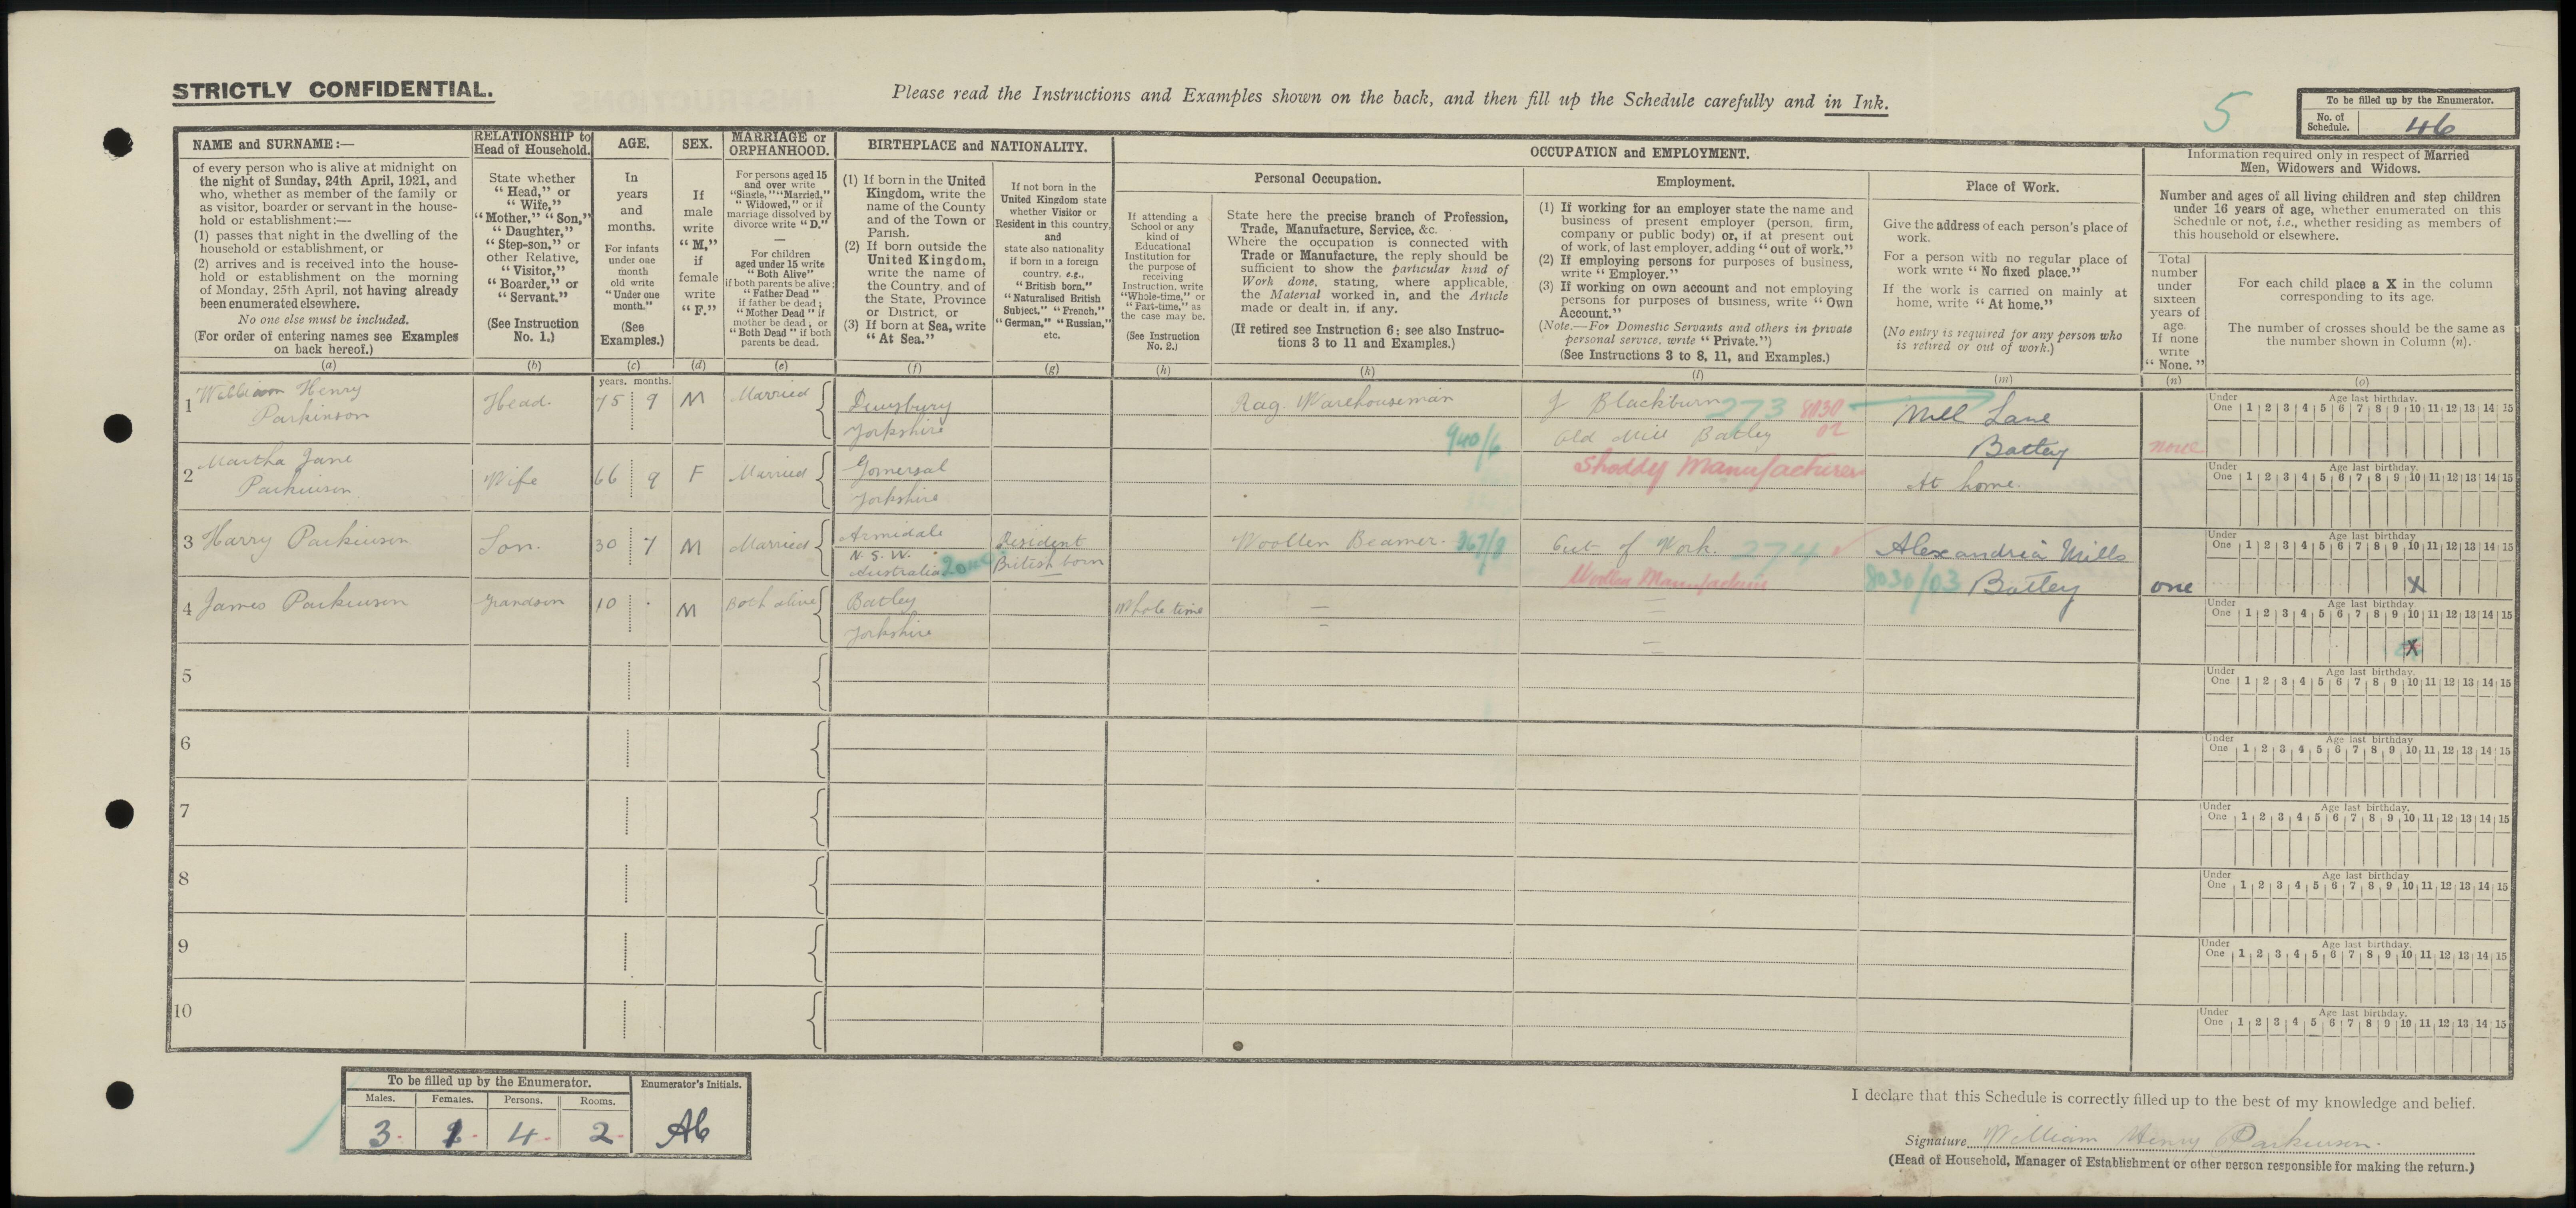 STRICTLY CONFIDENTIAL.
Please read the Instructions and Examples shown on the back, and then fill up the Schedule carefully and in Ink.
5
To be filled up by the Enumerator.
No. of Schedule. 46
NAME and SURNAME:—
of every person who is alive at midnight on
the night of Sunday, 24th April, 1921, and
who, whether as member of the family or
as visitor, boarder or servant in the house-
hold or establishment:—
(1) passes that night in the dwelling of the
household or establishment, or
(2) arrives and is received into the house-
hold or establishment on the morning
of Monday, 25th April, not having already
been enumerated elsewhere.
No one else must be included.
(For order of entering names see Examples
on back hereof.)
(a)
RELATIONSHIP to
Head of Household.
State whether
"Head," or
"Wife,"
"Mother," "Son,"
"Daughter,"
"Step-son," or
other Relative,
"Visitor,"
"Boarder," or
"Servant."
(See Instruction
No. 1.)
(b)
AGE.
In
years
and
months.
For infants
under one
month
old write
"Under one
month."
(See
Examples.)
(c)
SEX.
If
male
write
"M,"
if
female
write
"F."
(d)
MARRIAGE or
ORPHANHOOD.
For persons aged 15
and over write
"Single," "Married,"
"Widowed," or if
marriage dissolved by
divorce write "D."
For children
aged under 15 write
"Both Alive"
if both parents be alive;
"Father Dead"
if father be dead;
"Mother Dead" if
mother be dead, or
"Both Dead" if both
parents be dead.
(e)
BIRTHPLACE and NATIONALITY.
(1) If born in the United
Kingdom, write the
name of the County
and of the Town or
Parish.
(2) If born outside the
United Kingdom,
write the name of
the Country, and of
the State, Province
or District, or
(3) If born at Sea, write
"At Sea."
(f)
If not born in the
United Kingdom state
whether Visitor or
Resident in this country,
and
state also nationality
if born in a foreign
country, e.g.,
"British born,"
"Naturalised British
Subject," "French,"
"German," "Russian,"
etc.
(g)
OCCUPATION and EMPLOYMENT.
Personal Occupation.
If attending a
School or any
kind of
Educational
Institution for
the purpose of
receiving
Instruction, write
"Whole-time," or
"Part-time," as
the case may be.
(See Instruction
No. 2.)
(h)
State here the precise branch of Profession,
Trade, Manufacture, Service, &c.
Where the occupation is connected with
Trade or Manufacture, the reply should be
sufficient to show the particular kind of
Work done, stating, where applicable,
the Material worked in, and the Article
made or dealt in, if any.
(If retired see Instruction 6; see also Instruc-
tions 3 to 11 and Examples.)
(k)
Employment.
(1) If working for an employer state the name and
business of present employer (person, firm,
company or public body) or, if at present out
of work, of last employer, adding "out of work."
(2) If employing persons for purposes of business,
write "Employer."
(3) If working on own account and not employing
persons for purposes of business, write "Own
Account."
(Note.—For Domestic Servants and others in private
personal service, write "Private.")
(See Instructions 3 to 8, 11, and Examples.)
(l)
Place of Work.
Give the address of each person's place of
work.
For a person with no regular place of
work write "No fixed place."
If the work is carried on mainly at
home, write "At home."
(No entry is required for any person who
is retired or out of work.)
(m)
Information required only in respect of Married
Men, Widowers and Widows.
Number and ages of all living children and step children
under 16 years of age, whether enumerated on this
Schedule or not, i.e., whether residing as members of
this household or elsewhere.
Total
number
under
sixteen
years of
age.
If none
write
"None."
(n)
For each child place a X in the column
corresponding to its age.
The number of crosses should be the same as
the number shown in Column (n).
(o)
years. months.
Under One 1 2 3 4 5 6 7 8 9 10 11 12 13 14 15
Age last birthday.
1 William Henry Parkinson Head. 75 9 M Married Dewsbury Yorkshire Rag. Warehouseman 940/6 J Blackburn 273 8030
Old Mill Batley 02 Mill Lane Batley none
Shoddy Manufacturer
Under One 1 2 3 4 5 6 7 8 9 10 11 12 13 14 15
Age last birthday.
2 Martha Jane Parkinson Wife 66 9 F Married Gomersal Yorkshire At home.
Under One 1 2 3 4 5 6 7 8 9 10 11 12 13 14 15
Age last birthday.
3 Harry Parkinson Son. 30 7 M Married Armidale N. S. W. Australia Resident British born Woollen Beamer. 367/8 Out of Work. 274 Alexandria Mills Batley one X
Woollen Manufacture 8030/03
Under One 1 2 3 4 5 6 7 8 9 10 11 12 13 14 15
Age last birthday.
4 James Parkinson Grandson 10 M Both alive Batley Yorkshire Whole time X
Under One 1 2 3 4 5 6 7 8 9 10 11 12 13 14 15
Age last birthday.
5
Under One 1 2 3 4 5 6 7 8 9 10 11 12 13 14 15
Age last birthday
6
Under One 1 2 3 4 5 6 7 8 9 10 11 12 13 14 15
Age last birthday.
7
Under One 1 2 3 4 5 6 7 8 9 10 11 12 13 14 15
Age last birthday
8
Under One 1 2 3 4 5 6 7 8 9 10 11 12 13 14 15
Age last birthday.
9
Under One 1 2 3 4 5 6 7 8 9 10 11 12 13 14 15
Age last birthday.
10
To be filled up by the Enumerator.
Enumerator's Initials.
Males. Females. Persons. Rooms.
3 1 4 2
I declare that this Schedule is correctly filled up to the best of my knowledge and belief.
Signature William Henry Parkinson.
(Head of Household, Manager of Establishment or other person responsible for making the return.)